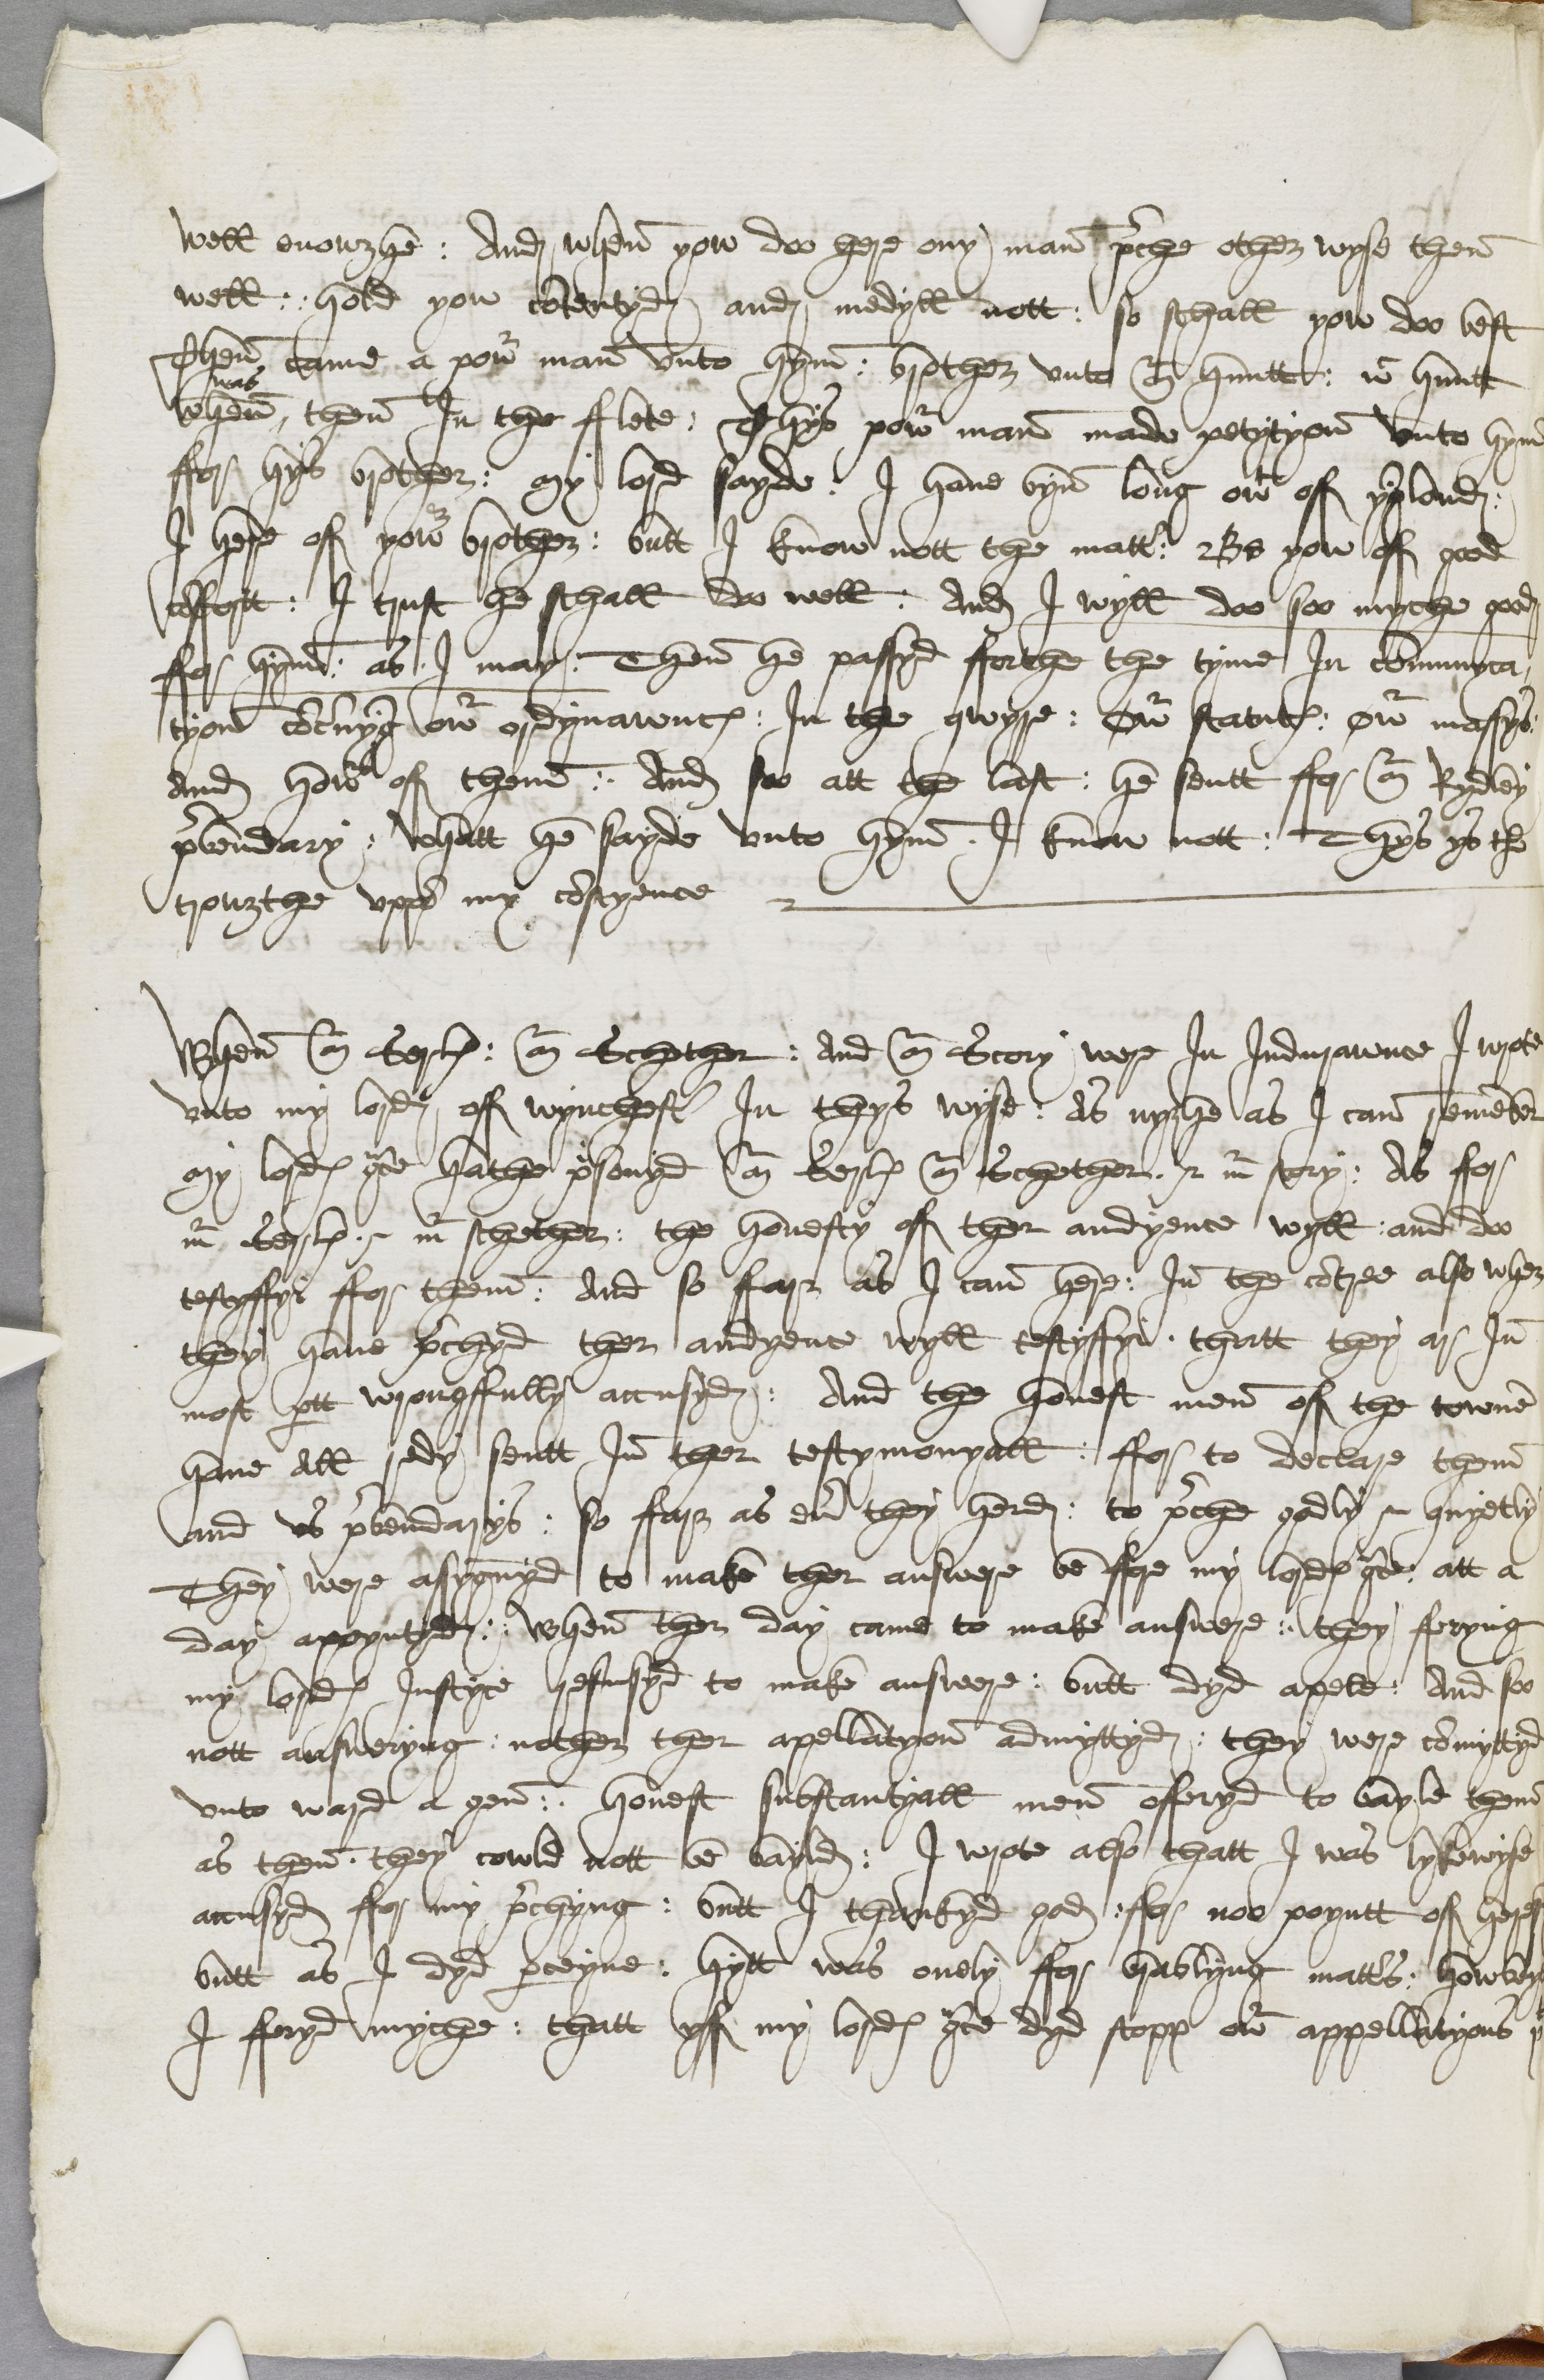 well enowzhe : And when yow doo here ony man p'che other wyse then
well : hold yow cōtentyd and medyll nott : so schall yow doo best
Then came a power man vnto hym : brother vnto Mr Huntt : w^t Huntt
was
when, then In the fflete : Thys power man made petytyon vnto hym
ffor hys brother : My lord sayde . I haue byn long owt off ynglond :
I here off yowr brother : butt I know nott the matt' : Be yow off good
cōffortt : I trust he schall do well : And I wyll doo soo myche good
ffor hym : as I may : Then he passyd fforthe the tyme In cōmmunyca,
tyon cōcernyg owr ordynawnces : In the qwyre : Owr statutes : owr massys :
And howr off them : And soo att the last : he sentt ffor Mr Rydley
p'bendary : Whatt he sayde vnto hym . I know nott : Thys ys the
trowzthe vppō my cōscyence

When Mr Serls : Mr Schether : And Mr Scory were In Indurawnce I wrote
vnto my lord off wynchest' In thys wyse : As nyzhe as I can remēber
My lordes g'ce hathe p'sonyd Mr Serls Mr Schether & mr scory : As ffor
mr Serls & mr schether : the honesty off ther audyence wyll : and doo
testyffyi ffor them : And so ffarr as I can here : In the cōtree also wher
they haue p'chyd ther audyence wyll testyffyi . thatt they ar In
most p'tt wrongffully accusyd : And the honest men off the towne
haue All redy sentt In ther testymonyall : ffor to declare them
and vs p'bendarys : so ffarr as eu' they herd : to p'che godly & quyetly
They were asygnyd to make ther answere be ffore my lordes g'ce : att a
day apoyntyd : When ther day came to make answere : they fferyng
my lordes Iustyce reffusyd to make answere : butt dyd apele : And soo
nott answeryng : nother ther apellatyon admyttyd : they were cōmyttyd
vnto ward a gen : honest substantyall men offeryd to bayle them
as then . they cowld nott be bayld : I wrote also thatt I was lykewyse
accusyd ffor my p'chyng : butt I thankyd god : ffor noo poyntt off heresy
butt as I dyd p'ceyue : hytt was onely ffor brablyng matt's : howbeyt
I fferyd myche : thatt yff my lordes g'ce dyd stopp owr appellatyons